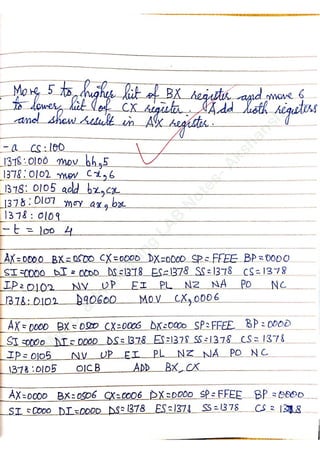 Move 5 to higher bit of BX register and move 6
to lower bit of CX register. Add both registers
and show result in AX register.
-a cs:100
1378:0100 mov bh,5
1378:0102 mov cx,6
1378:0105 add bx,cx
1378:0107 mov ax,bx
1378:0109
-t=100 4
AX=0000 BX=0500 CX=0000 DX=0000 SP=FFEE BP=0000
SI=0000 DI=0000 DS=1378 ES=1378 SS=1378 CS=1378
IP=0102 NV UP EI PL NZ NA PO NC
1378:0102 B90600 MOV CX,0006
AX=0000 BX=0500 CX=0006 DX=0000 SP=FFEE BP=0000
SI=0000 DI=0000 DS=1378 ES=1378 SS=1378 CS=1378
IP=0105 NV UP EI PL NZ NA PO NC
1378:0105 01CB ADD BX,CX
AX=0000 BX=0506 CX=0006 DX=0000 SP=FFEE BP=0000
SI=0000 DI=0000 DS=1378 ES=1378 SS=1378 CS=1378
LAB Notes-